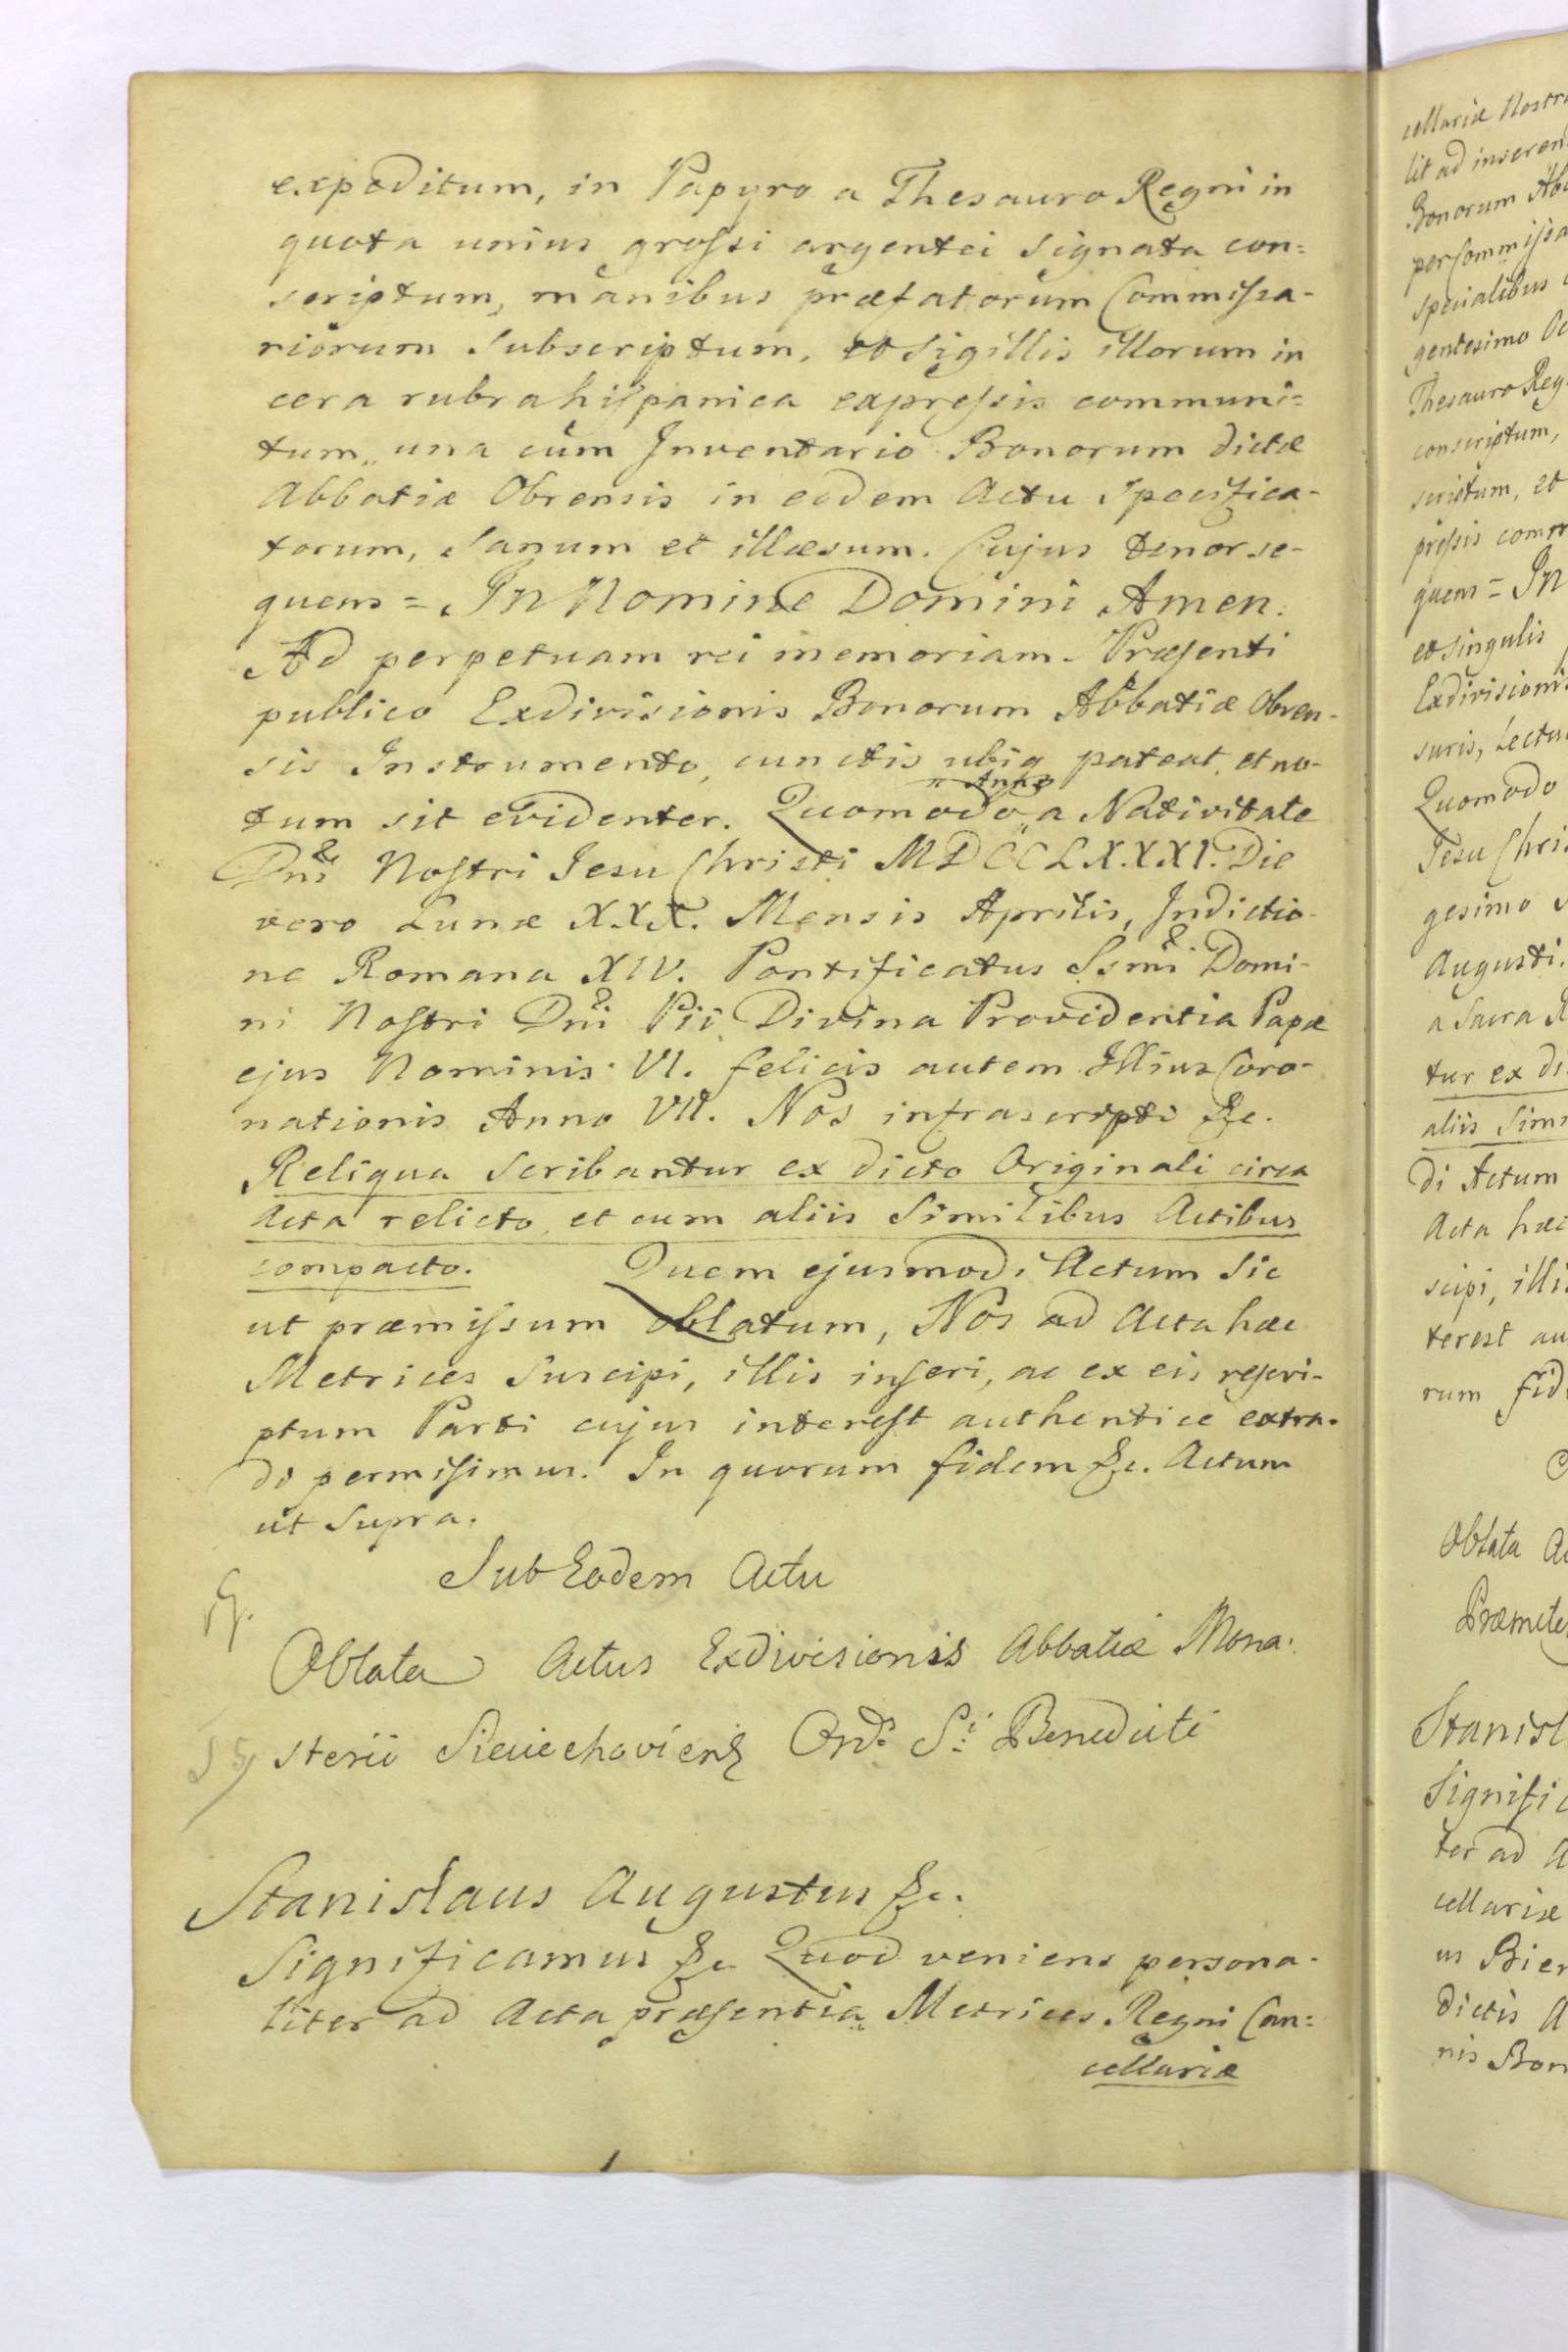 expeditum, in Papyro a Thesauro Regni in
quota unius grossi argentei signata con=
scriptum, manibus præfatorum Commissa-
riorum subscriptum, et Sigillis illorum in
cera rubra hispanica expressis communi=
tum, una cum Inventario Bonorum dictæ
Abbatiæ Obrensis in eodem Actu specifica-
torum, sanum et illæsum. Cujus tenor se-
quens = In Nomine Domini Amen.
Ad perpetuam rei memoriam. Præsenti
publico Exdivisionis Bonorum Abbatiæ Obren-
sis Instrumento, cunctis ubiq pateat, et no-
Anno
tum sit evidenter. Quomodo a Nativitate
Dni Nostri Jesu Christi MDCCLXXXI. Die
vero Lunæ XXX. Mensis Aprilis, Indictio-
ne Romana XIV. Pontificatus Ssmi Domi-
ni Nostri Dni Pii Divina Providentia Papæ
ejus Nominis VI. felicis autem Illius Coro-
nationis Anno VII. Nos infrascripti &c.
Reliqua Scribantur ex dicto Originali circa
Acta relicto et cum aliis Similibus Actibus
compacto. Quem ejusmodi Actum sic
ut præmissum oblatum, Nos ad Acta hæc
Metrices Suscipi, illis inseri, ac ex eis rescri-
ptum Parti cujus interest authentice extra-
di permisimus. In quorum fidem &c. Actum
ut Supra.
Sub Eodem Actu
Oblata Actus Exdivisionis Abbatiæ Mona:
sterii Ord: S:i Benedicti
Stanislaus Augustus &c.
Significamus &c. Quod veniens persona-
liter ad Acta præsentia Metrices Regni Can=
cellariæ
cellariæ Nostr
lit ad inseren
Bonorum Ab
per Commissa
specialibus
gentesimo Oc
Thesauro Reg
conscriptum,
scriptum, et
pressis comm
quens = In
et singulis
Exdivisioni
suris, Lectu
Quomodo
Jesu Chri
gesimo
Augusti.
a Sacra R
tur ex di
aliis Simi
di Actum
Acta hæc
scipi, illi
terest au
rum fid
Oblata Ac
Præmete
Stanisl
Signific
ter ad A
cellariæ
us Bier
dictis A
nis Bon